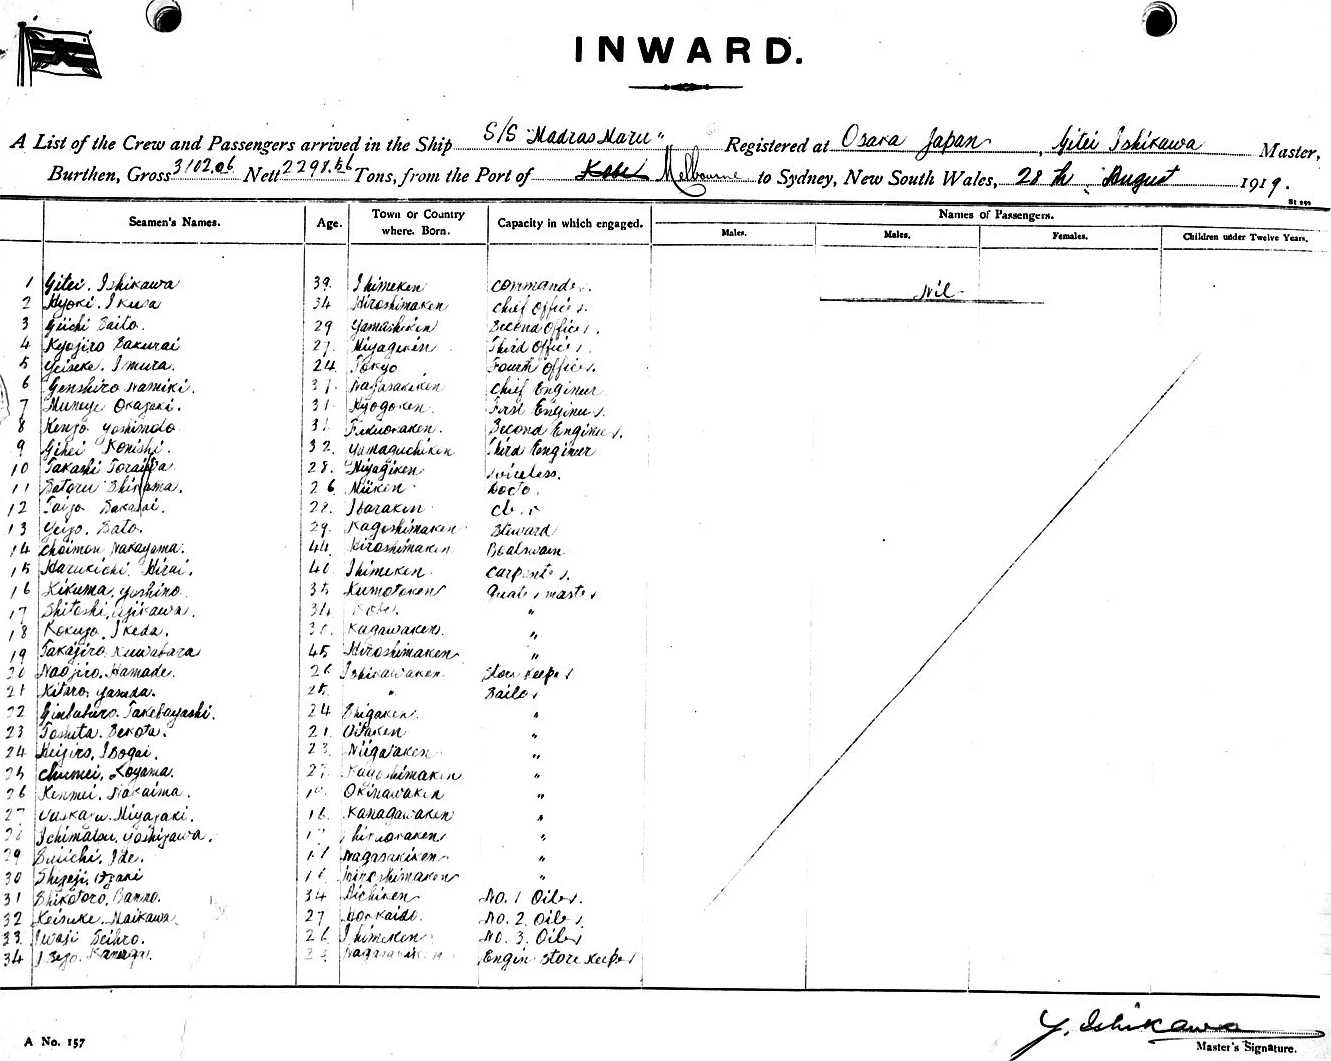 INWARD.
A List of the Crew and Passengers arrived in the Ship S/S "Madras Maru" Registered at Osaka Japan, Gitei Ishikawa Master,
Burthen, Gross 3102.06 Nett 2298.56 Tons, from the Port of Kobe Melbourne to Sydney, New South Wales, 28th August 1919.
St 292
Seamen's Names. Age. Town or Country where. Born. Capacity in which engaged. Names of Passengers.
Males. Males. Females. Children under Twelve Years.
1 Gitei. Ishikawa 39. Ihimeken Commander. Nil
2 Kyoki. Ikusa 34 Hiroshimaken Chief Officer.
3 Giichi Saito. 29 Yamashiken Second Officer.
4 Kyojiro Sakurai 27. Miyagiken Third Officer.
5 Yeisuke. Imura. 24 Tokyo Fourth Officer.
6 Genshiro Namiki. Nagasakiken Chief Engineer
7 Muneye Okazaki. 31. Hyogoken. First Engineer.
8 Kenzo Yoshimoto Fukuokaken. Second Engineer.
9 Gihei Konishi. 32. Yamaguchiken Third Engineer
10 Takashi 28. Miyagiken Wireless.
11 Satoru 26 Niiken
12 Taizo Sakai. 28. Ibaraken
13 Yeizo. Sato. 29. Kagoshimaken Steward
14 Choimon Nakayama. 44. Hiroshimaken Boatswain
15 Harukichi Hirai. 40 Ihimeken Carpenter.
16 Kikuma. Yoshino Kumotoken Quartermaster
17 Shitoshi. Ujikawa. 34 Kobe. "
18 Kokuzo. Ikeda. Kagawaken. "
19 Takajiro. Kuwabara 45 Hiroshimaken "
20 Naojiro. Hamade. 26 Ishikawaken Store Keeper
21 Kitaro. Yasuda. 25. " Sailor
22 Takebayashi. 24 Shigaken. "
23 Tomita. Sekota. 21. Oitaken "
24 Keijiro. Isogai. 23. Niigataken "
25 Chumei. Koyama. 27. Kagoshimaken "
26 Kenmei. Nakaima. Okinawaken "
27 Miyazaki. Kanagawaken "
28 Ichimatsu. Yoshizawa. "
29 Suiichi. Ide. Nagasakiken "
30 Shigeji. Ozaki Hiroshimaken "
31 Shikotoro. Banno. 34 Aichiken No. 1 Oiler.
32 Keisuke. Naikawa. 27 Hokkaido. No. 2. Oiler.
33. Iwaji Seihro. 26 Ihimeken No. 3. Oiler
34 Nagasakiken Engin Store Keeper
Y. Ishikawa
Master's Signature.
A No. 157